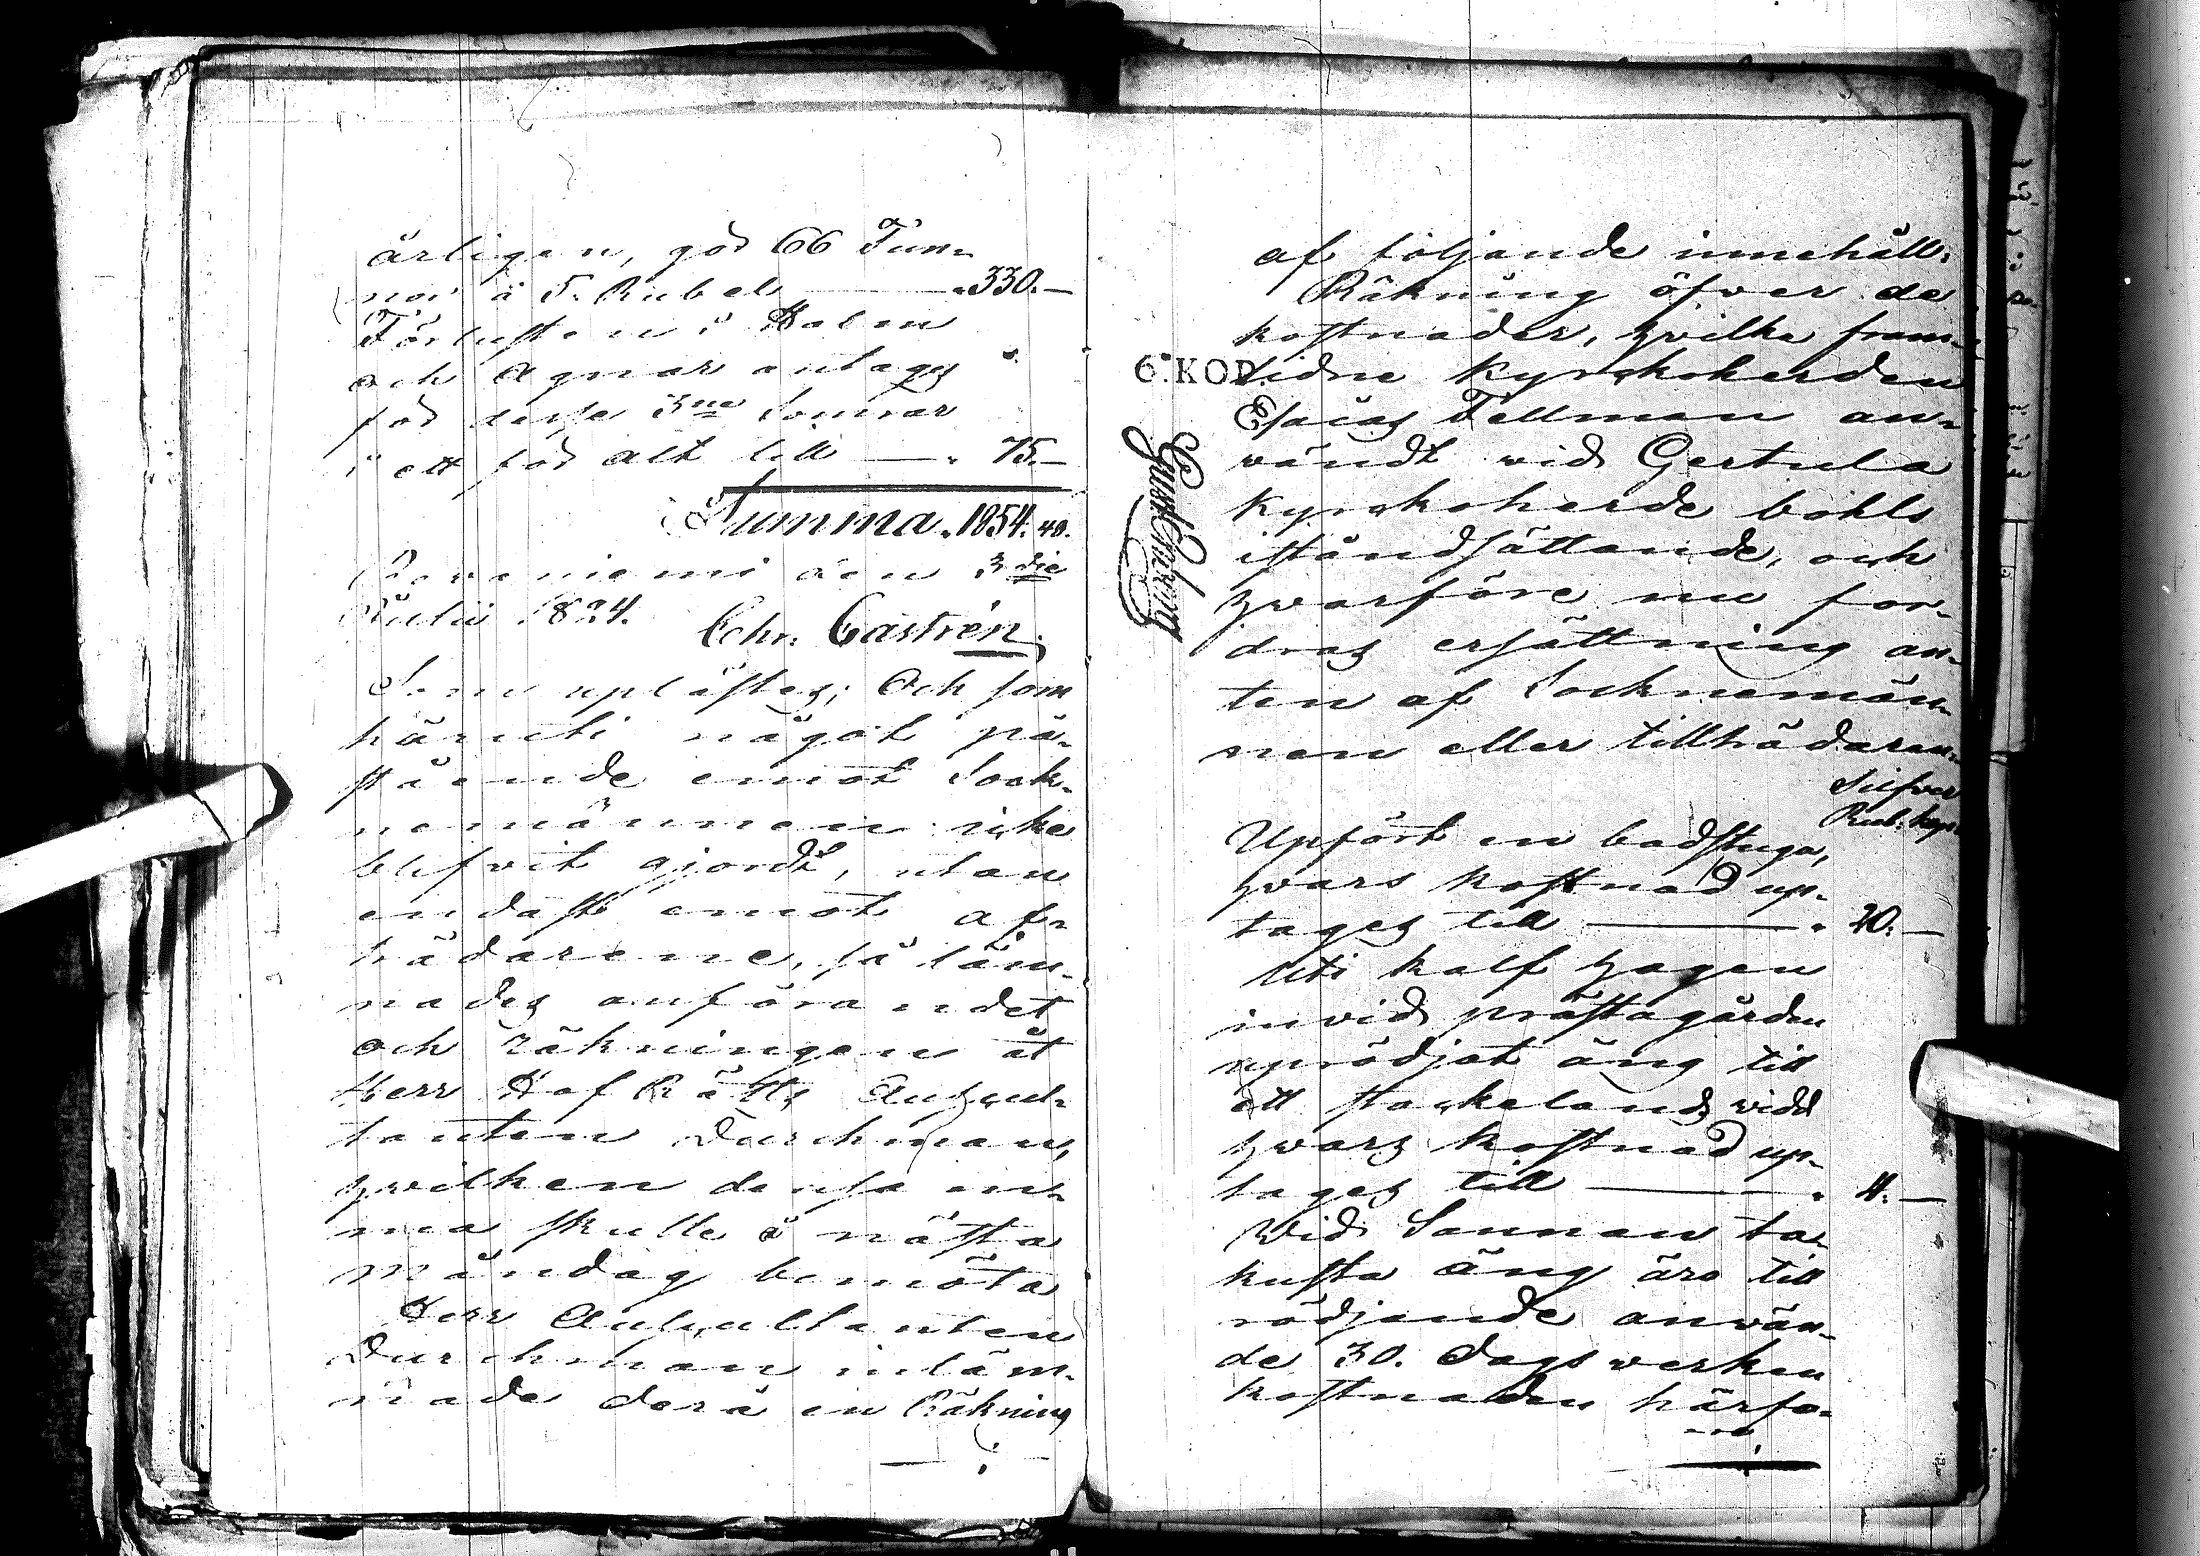 årligen, gör 66 Tun-
nor à 5. Rubel " 330.—
Förlusten i Halm
och Agnar antages
för desse 3ne Somrar
i ett för alt till — " 75.—
Summa " 1854. 40.
Rovaniemi den 3die
Julii 1824. Chr: Castrén.
Som uplästes; Och som
häruti något på-
stående emot Sock-
nemännen icke
blifvit gjordt, utan
endast emot af-
trädarene, så läm-
nades anförandet
och räkningen åt
Herr Hof Rätts Auscul-
tanten Durchman,
hvilken densamma
skulle å nästa
måndag bemöta
Herr Auscultanten
Durchman inläm-
nade derå en Räkning
af följande innehåll:
Räkning öfver de
kostnader, hvilka fram-
6. KOP.
lidne Kyrkoherden
Esaias Fellman an-
vändt vid Gertula
Kyrkoherde bohls
iståndsättande, och
hvarföre nu for-
dras ersättning an-
ten af Socknemän-
nen eller tillträdaren.
Silfver
Rub: kop:
Upfört en badstuga,
hvars kostnad up-
tages till — " 20.—
Uti kalf hagen
invid prästagården
uprödjat äng till
ett stackeland, vidd
hvars kostnad up-
tages till — " 4.—
Vid Sonnan ta-
kusta äng äro till
rödjande använ-
de 30. dagsverken
kostnaden härfö-